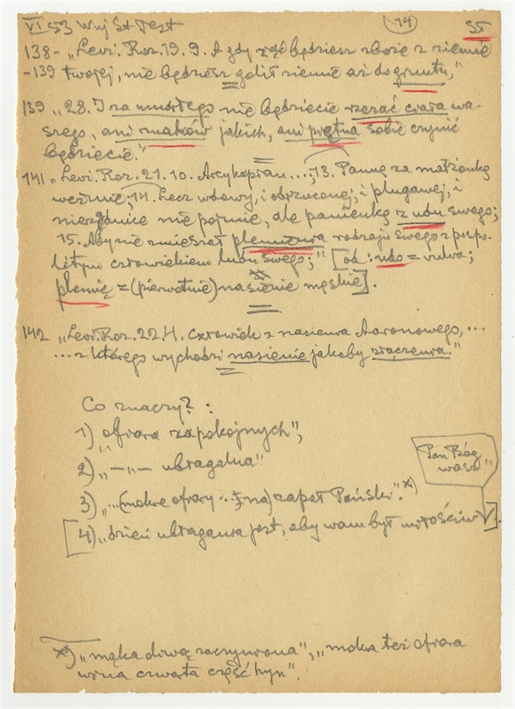 VI 53 Wuj St Test 14 55
138 - „Levi. Roz. 19. 9. A gdy żąć będziesz zboże z ziemie
-139 twojej, nie będziesz golił ziemie aż do gruntu,"
139 „28. I za umarłego nie będziecie rzezać ciała wa-
szego, ani znaków jakich, ani piętna sobie czynić
będziecie."
141 „Levi. Roz. 21. 10. Arcykapłan...; 13. Pannę za małżonkę
weźmie; 14. Lecz wdowy, i odrzuconej, i plugawej, i
nierządnice nie pojmie, ale panienkę z ludu swego;
15. Aby nie zmieszał plemienia rodzaju swego z pospo-
litym człowiekiem ludu swego;" [od: = vulva;
plemię = (pierwotnie) nasienie męskie].
142 „Levi. Roz. 22. 4. Człowiek z nasienia Aaronowego, ...
... z którego wychodzi nasienie jakoby złączenia."
Co znaczy? :
1) „ofiara zapokojnych",
2) „ -"- ubłagalna"
3) „...(mokre ofiary ...) zapał Pański." x)
[4) „dzień ubłagania jest, aby wam był miłościw].
Pan Bóg
wasz"
x) „mąka oliwą zaczyniona", „mokra też ofiara
wina czwarta część hyn".